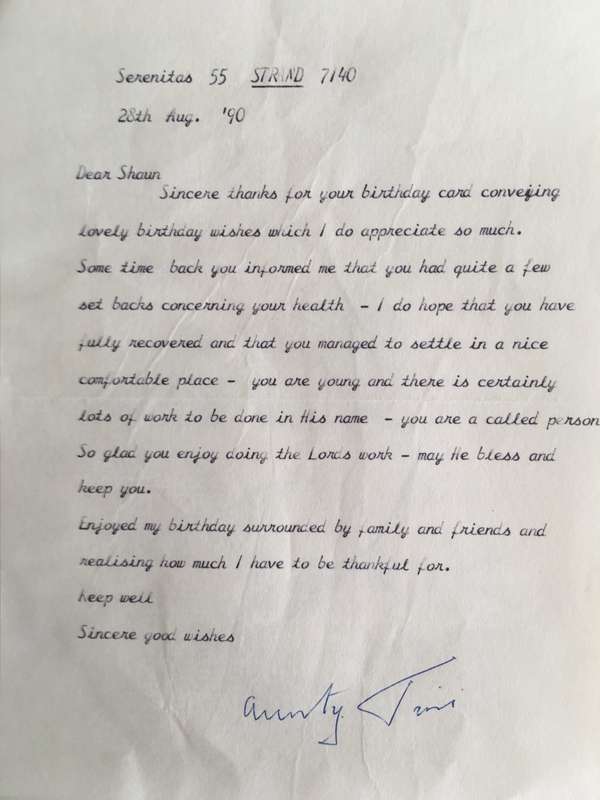 Serenitas 55 STRAND 7140
28th Aug. '90
Dear Shaun
Sincere thanks for your birthday card conveying
lovely birthday wishes which I do appreciate so much.
Some time back you informed me that you had quite a few
set backs concerning your health - I do hope that you have
fully recovered and that you managed to settle in a nice
comfortable place - you are young and there is certainly
lots of work to be done in His name - you are a called person
So glad you enjoy doing the Lords work - may He bless and
keep you.
Enjoyed my birthday surrounded by family and friends and
realising how much I have to be thankful for.
Keep well
Sincere good wishes
Aunty Tini